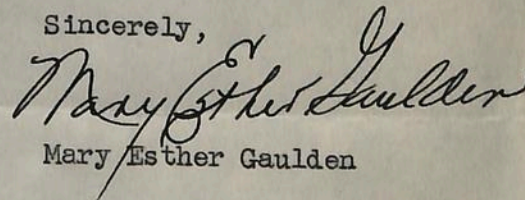 Sincerely,
Mary Esther Gaulden
Mary Esther Gaulden